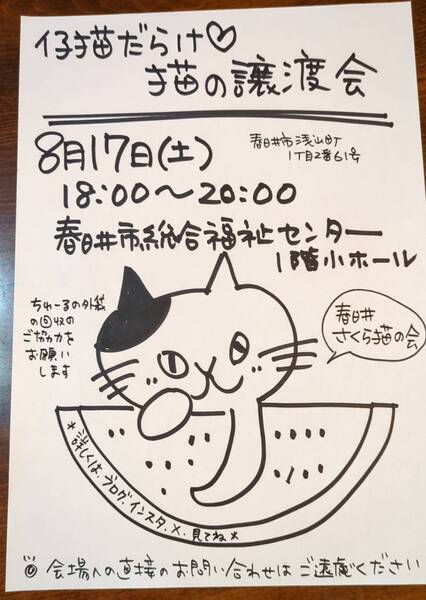 仔猫だらけ♡
猫の譲渡会
8月17日(土)
春日井市浅山町
1丁目2番61号
18:00〜20:00
春日井市総合福祉センター
1階小ホール
ちゅーるの外袋
の回収の
ご協力を
お願い
します
春日井
さくら猫の会
*詳しくは、ブログ、インスタ、X、見てね*
◎会場への直接のお問い合わせはご遠慮ください